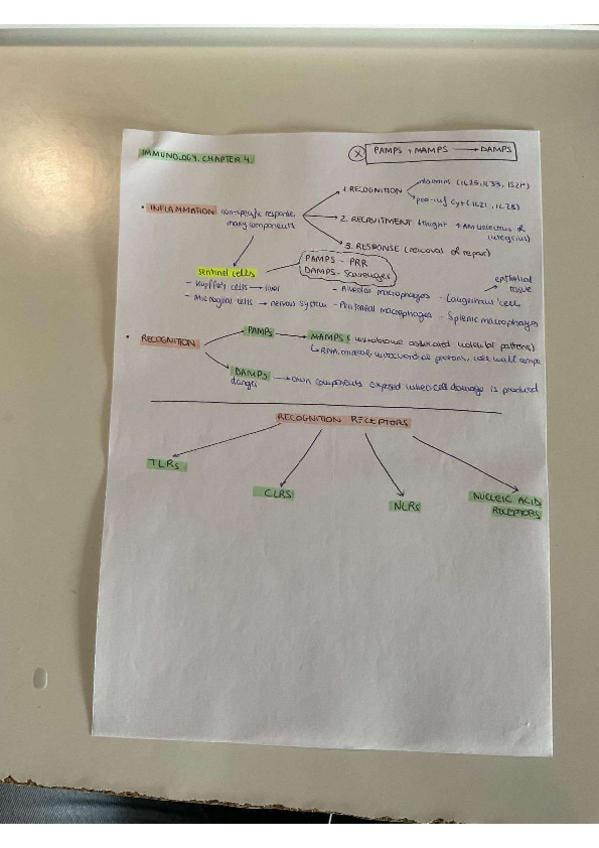 IMMUNOLOGY. CHAPTER 4.
X PAMPS + MAMPS → DAMPS
• INFLAMMATION non-specific response, many components
1. RECOGNITION
(IL25, IL33,
pro-inf cyt (IL21, IL28)
2. RECRUITMENT
integrins)
3. RESPONSE (removal of repair)
PAMPS - PRR
DAMPS - Scavenger
sentinel cells
epithelial tissue
- Kupffer cells → liver
- Alveolar macrophages
- Langerhans' cell
- Microglial cells → nervous system
- Peritoneal macrophages
- Splenic macrophages
• RECOGNITION
PAMPS → MAMPS ( associated molecular patterns)
cell wall
DAMPS → own components exposed when cell damage is produced
danger
RECOGNITION RECEPTORS
TLRs
CLRS
NLRs
NUCLEIC ACID
RECEPTORS